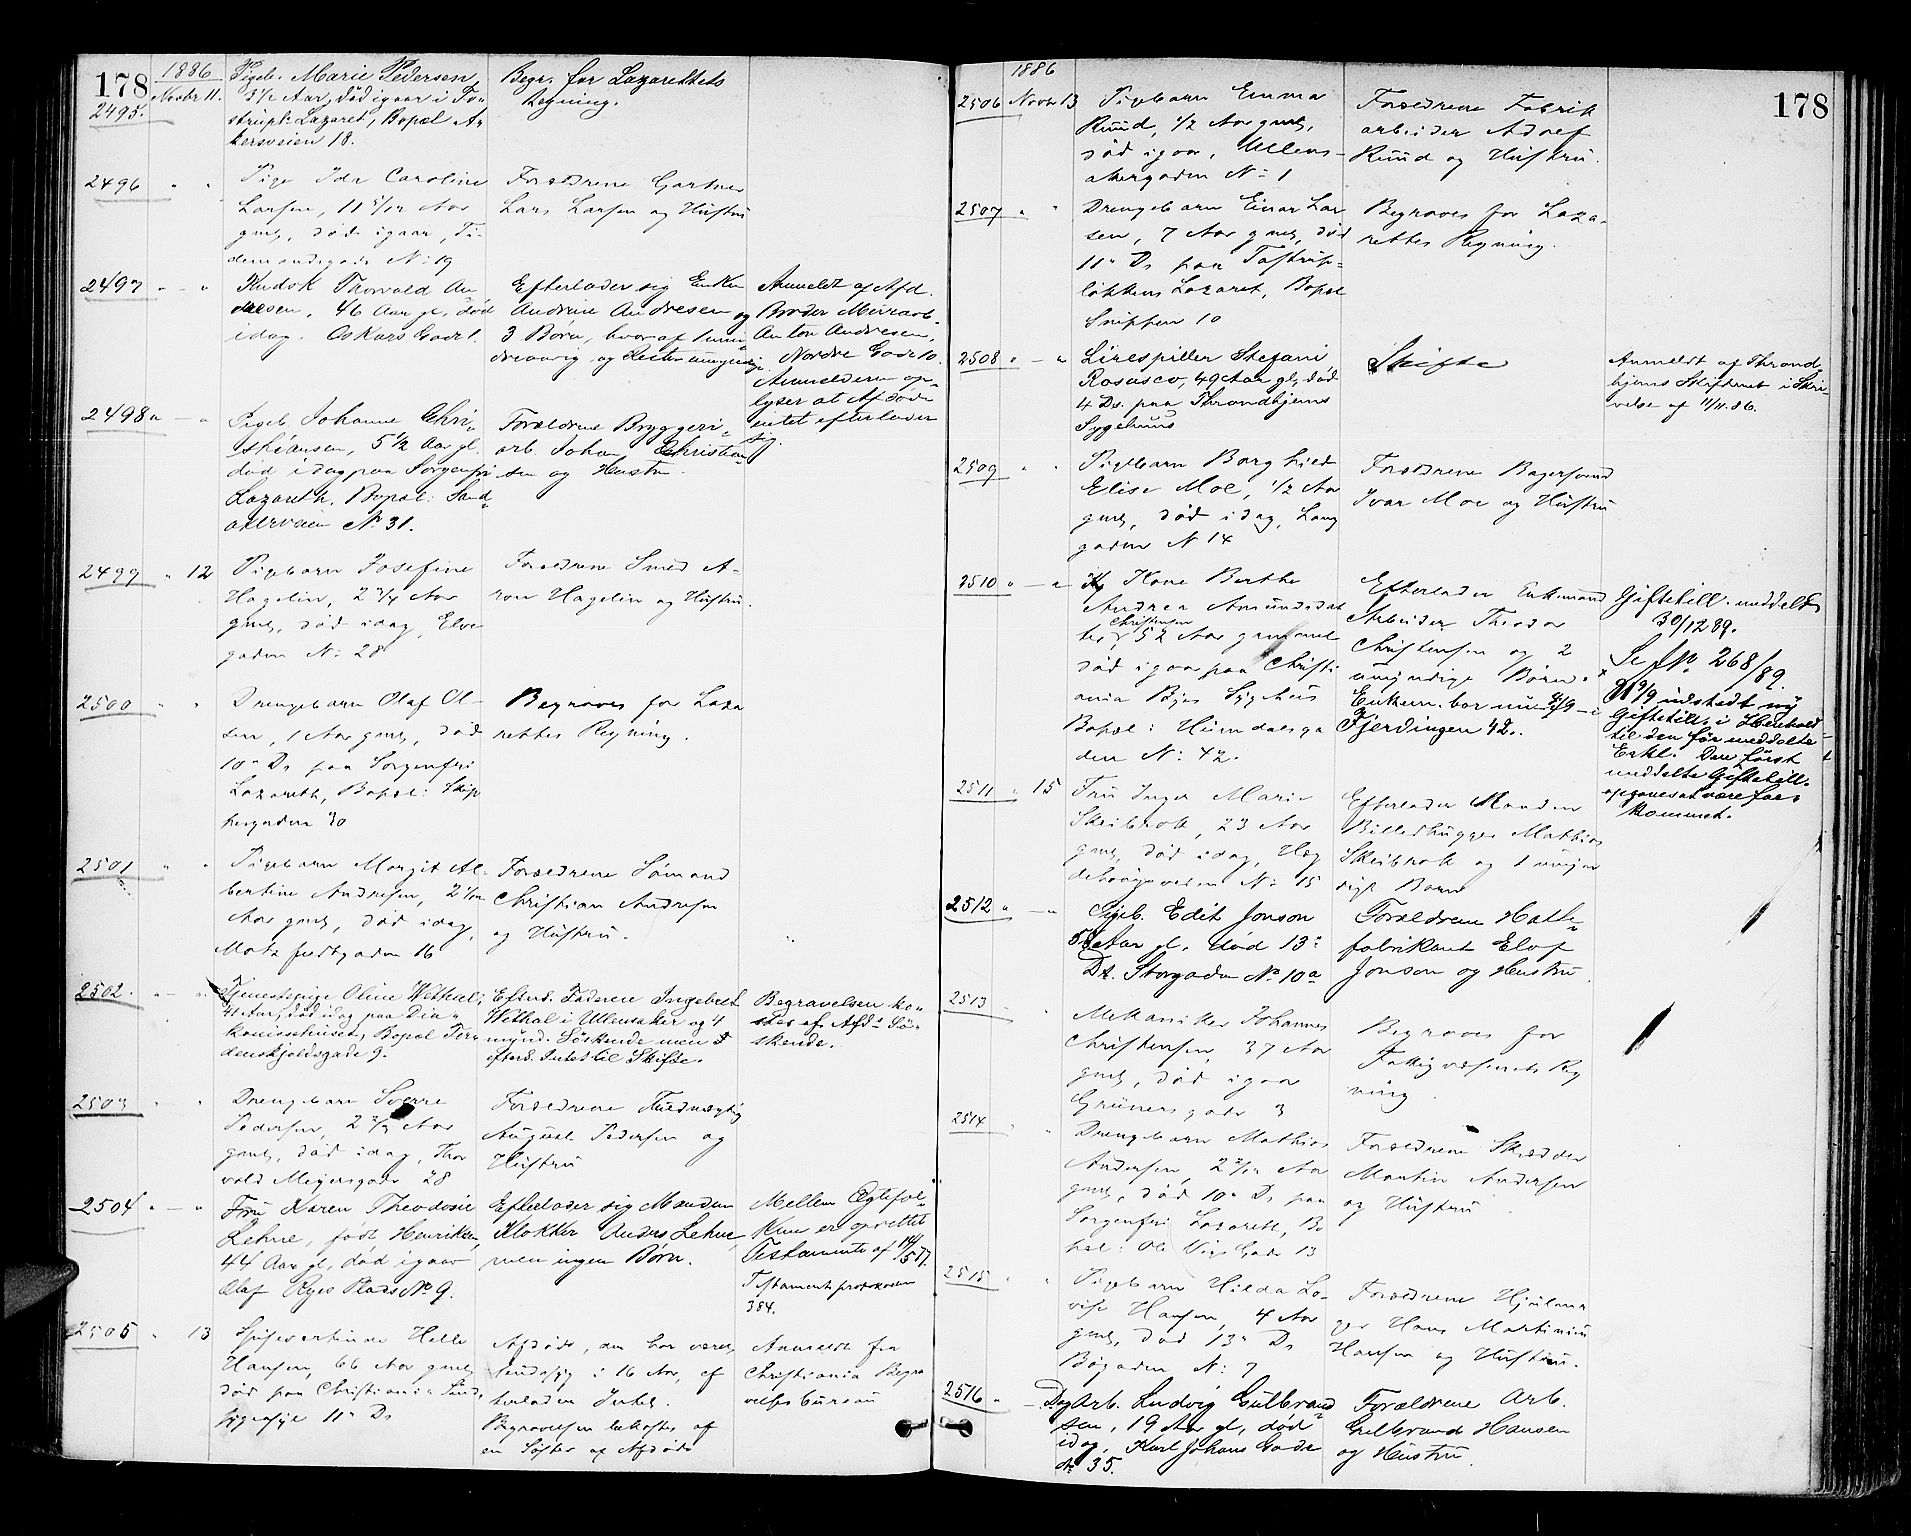 178
1886
Novbr 11.
2495.
Pigeb. Marie Pedersen,
3 1/2 Aar, død igaar i To-
strupl. Lazaret, Bopæl A-
kersveien 18.
Begr. for Lazarettets
Regning.
2496 " "
Pige Ida Caroline
Larsen, 11 5/12 Aar
gml, død igaar, Ti-
demandsgade N: 19
Forældrene Gartner
Lars Larsen og Hustru
2497 " - "
Kudsk Thorvald An-
dresen, 46 Aar gl, død
idag. Oskars Gade 1.
Efterlader sig Enken
Andrine Andresen og
3 Børn, hvoraf
og
Anmeldt af Afd.
Broder Murarb.
Anton Andresen,
Nordre Gade 10.
Anmelderen op-
lyser at Afdøde
intet efterlader
sig.
2498 " - "
Pigeb Johanne Chri-
stiansen, 5 1/2 Aar gl.
død idag paa Sorgenfri
Lazareth. Bopæl: Sand-
akerveien N 31.
Forældrene Bryggeri-
arb. Johan Christian-
sen og Hustru.
2499 " 12
Pigebarn Josefine
Hagelin, 2 3/4 Aar
gml, død idag, Elve
gaden N: 28
Forældrene Smed A-
ron Hagelin og Hustru.
2500 " "
Drengebarn Olaf Ol-
sen, 1 Aar gml, død
10" Ds paa Sorgenfri
Lazareth, Bopæl: Skip
pergaden 30
Begraves for Laza
rettes Regning.
2501 " "
Pigebarn Margit Al-
bertine Andresen, 2
Aar gml, død idag,
Motzfeldtgaden 16
Forældrene Sømand
Christian Andresen
og Hustru.
2502. " - "
Tjenestepige Oline Wethal,
41 Aar, død idag paa Dia-
konissehuset, Bopæl Tor-
denskjoldsgade 9.
Efterl. Faderen Ingebret
Wethal i Ullensaker og 4
mynd. Søskende men
efterl. Intet til Skifte.
Begravelsen ko-
stes af Afd: Sø-
skende.
2503 " "
Drengebarn Sverre
Pedersen, 2 Aar
gml, død idag, Thor
vald Meyersgade 28
Forældrene Fuldmægtig
August Pedersen og
Hustru
2504 " - "
Fru Karen Theodosie
Lehne, født Henriksen,
44 Aar gl, død igaar
Olaf Ryes Plads No 9.
Efterlader sig Manden
Klokker Anders Lehne,
men ingen Børn.
Mellem Ægtefol-
kene er oprettet
Testamente af 14/5 57.
Testamentsprotokollen
384.
2505 " 13
Spiseverthinde Helle
Hansen, 66 Aar gml,
død paa Christiania Sind
sygeasyl 11" Ds
Afdøde, der har været
sindssyg i 16 Aar, ef
terlader Intet.
Begravelsen bekostes af
en Søster af Afdøde
Anmeldt fra
Christiania Begra
velsesbureau
178
1886
2506 Novbr 13
Pigebarn Emma
Ruud, 1/2 Aar gml,
død igaar, Ullens-
akergaden N: 1
Forældrene Fabrik
arbeider Adolf
Ruud og Hustru.
2507 " "
Drengebarn Einar Lar
sen, 7 Aar gml, død
11" Ds paa Tostrup-
løkkens Lazaret, Bopæl
Snippen 10
Begraves for Laza-
rettes Regning.
2508 " - "
Lirespiller Stefani
Rosasco, 49 Aar gl, død
4 Ds. paa Throndhjems
Sygehuus
Skifte
Anmeldt af Thrond
hjems Skifteret i Skri-
velse af 11/11. 86.
2509 " "
Pigebarn Borghild
Elise Moe, 1/2 Aar
gml, død idag, Lang
gaden N 14
Forældrene Bagersvend
Ivar Moe og Hustru
2510 " - "
Kone Berthe
Andrea Amundsdat
ter, Christensen 52 Aar gammel
død igaar paa Christi
ania Byes Sygehus
Bopæl: Heimdalsga
den N: 42.
Efterlader Enkemand
Arbeider Theodor
Christensen og 2
umyndige Børn.
Enkem. bor nu
Fjerdingen 42.
Giftetill. meddelt
30/12 89.
Se 268/89.
9/9 udstedt ny
Giftetill. i Henhold
til den før meddelte
Erkl. Den først
meddelte Giftetill.
opgaves at være for-
kommet.
2511 " 15
Fru Inger Marie
Skeibrok, 23 Aar
gml, død idag, Hæg
dehaugsveien N: 15
Efterlader Manden
Billedhugger Mathias
Skeibrok og 1 umyn
digt Barn
2512 " - "
Pigeb. Edit Jonson
Aar gl. død 13"
Ds. Storgaden No 10a
Forældrene Hatte-
fabrikant Elof
Jonson og Hustru
2513 "
Mekaniker Johannes
Christensen, 37 Aar
gml, død igaar
Grünersgade 3
Begraves for
Fattigvæsenets Reg
ning
2514 " "
Drengebarn Mathias
Andersen, 2 Aar
gml, død 10" Ds paa
Sorgenfri Lazarett, Bo
pæl: Ole Vigs Gade 13
Forældrene Skrædder
Martin Andersen
og Hustru
2515 " "
Pigebarn Hilda Lo-
vise Hansen, 4 Aar
gml, død 13" Ds
Bøgaden N: 7
Forældrene Hjulma
ger Hans Martinius
Hansen og Hustru.
2516 " -
Dagarb. Ludvig Gulbrand-
sen, 19 Aar gl, død
idag, Karl Johans Gade
No 35.
Forældrene Arb.
Gulbrand Hansen
og Hustru.